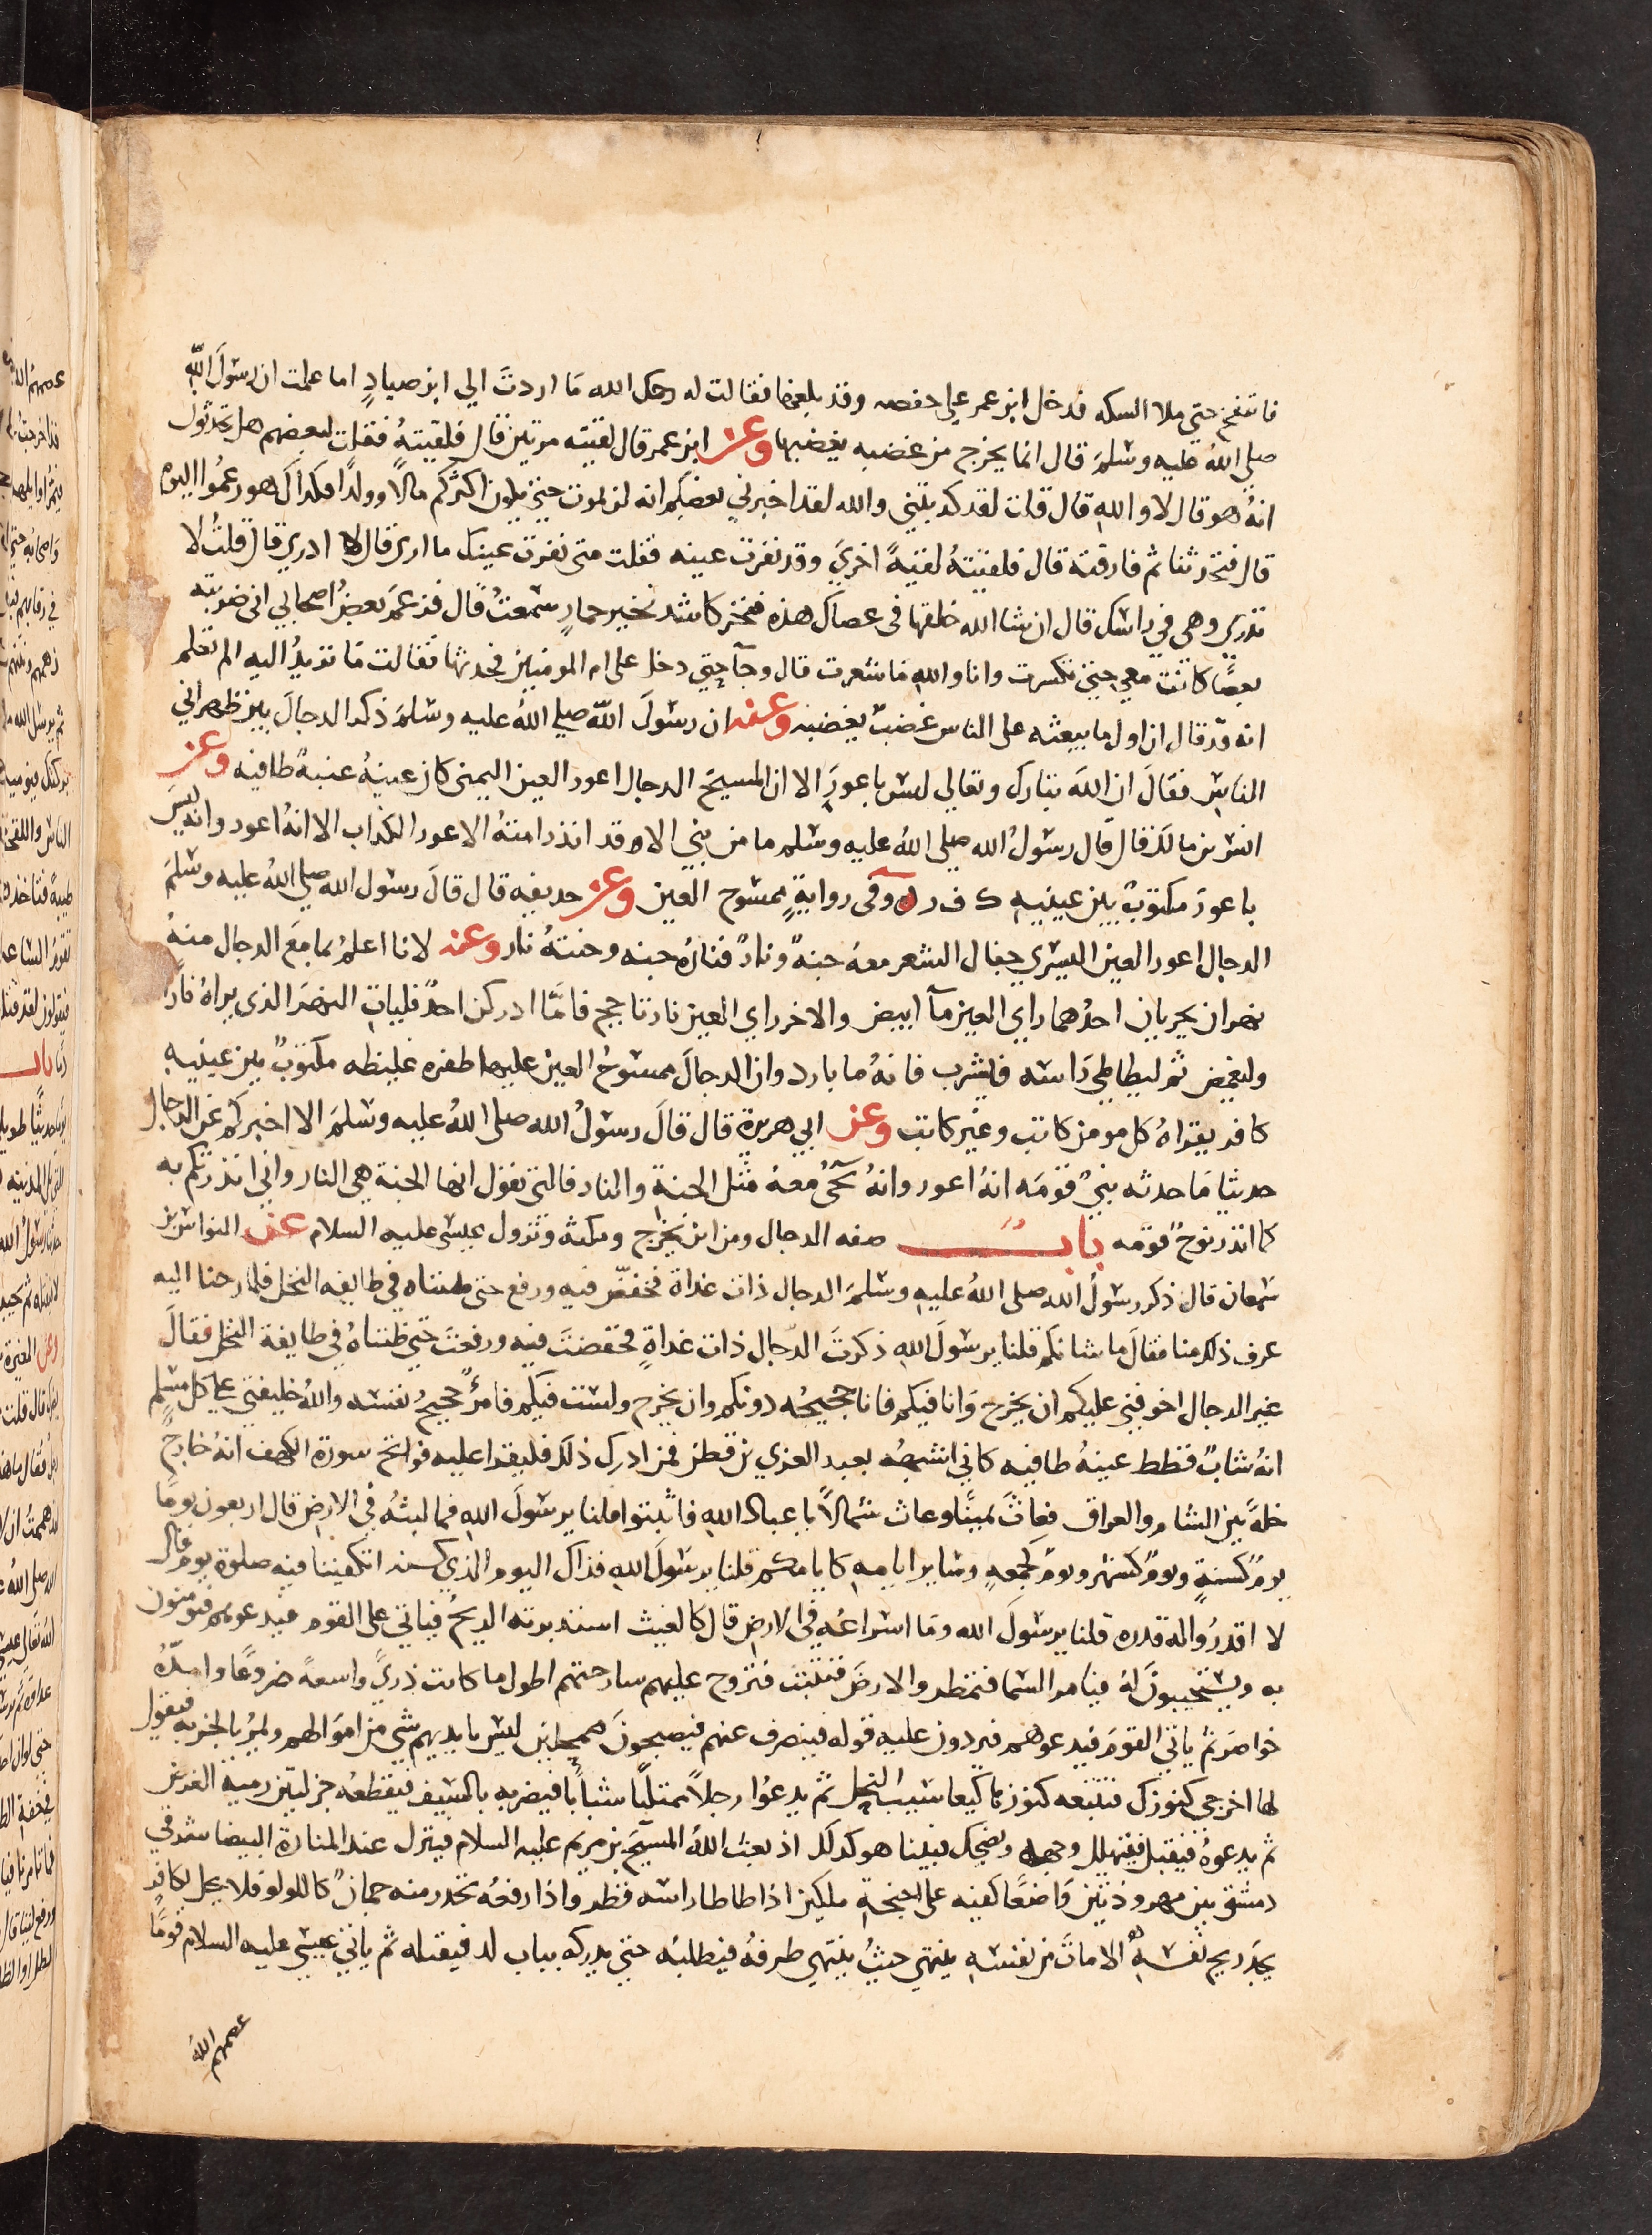 فانتفخ حتى ملا السكه فدخل ابن عمر على حفصه وقد بلغها فقالت له رحمك الله ما اردت الي ابن صياد اما علمت ان رسول الله
صلي الله عليه وسلم قال انما يخرج من غضبه يغضبها وعن ابن عمر قال لقيته مرتين قال فلقيته فقلت لبعضهم هل تحدثون
انه هو قال لا والله قال قلت لقد كذبتني والله لقد اخبرني بعضكم انه لن يموت حتى يكون اكثركم مالا وولدا فكذاك هو زعموا اليوم
قال فتحدثنا ثم فارقته قال فلقيته لقيه اخري وقد نفرت عينه فقلت متى نفرت عينك ما ارى قال لا ادري قال قلت لا
تدري وهي في راسك قال ان شا الله خلقها في عصاك هذه فنخر كاشد نخير حمار سمعت قال فزعم بعض اصحابي اني ضربته
بعصا كانت معي حتى تكسرت وانا والله ما شعرت قال وجآ حتى دخل على ام المومنين فحدثها فقالت ما تريد اليه الم تعلم
انه قد قال ان اول ما يبعثه على الناس غضب يغضبه وعنه ان رسول الله صلي الله عليه وسلم ذكر الدجال بين ظهراني
الناس فقال ان الله تبارك وتعالي ليس باعور الا ان المسيح الدجال اعور العين اليمنى كان عينه عنبة طافيه وعن
انس بن مالك قال قال رسول الله صلى الله عليه وسلم ما من نبي الا وقد انذر امته الاعور الكذاب الا انه اعور وان ربكم ليس
باعور مكتوب بين عينيه ك ف ر وفي رواية ممسوح العين وعن حذيفه قال قال رسول الله صلى الله عليه وسلم
الدجال اعور العين اليسرى جفال الشعر معه جنة ونار فناره جنه وجنته نار وعنه لانا اعلم بما مع الدجال منه
نهران يجريان احدهما راي العين مآ ابيض والاخر راي العين نار تاجج فامَّا ادركن احد فليات النهر الذي يراه نارا
وليغمض ثم ليطاطي راسه فليشرب فانه ما بارد وان الدجال ممسوح العين عليها ظفره غليظه مكتوب بين عينيه
كافر يقراه كل مومن كاتب وغير كاتب وعن ابي هريرة قال قال رسول الله صلى الله عليه وسلم الا اخبركم عن الدجال
حديثا ما حدثه نبي قومه انه اعور وانه يجي معه مثل الجنة والنار فالتي يقول انها الجنة هي النار واني انذرتكم به
كما انذر نوح قومه باب صفه الدجال ومن اين يخرج ومكثه ونزول عيسى عليه السلام عن النواس بن
سمعان قال ذكر رسول الله صلى الله عليه وسلم الدجال ذات غداة فخفض فيه ورفع حتى ظنناه في طايفه النخل فلما رحنا اليه
عرف ذلك منا فقال ما شانكم قلنا يرسول الله ذكرت الدجال ذات غداة فخفضت فيه ورفعت حتى ظنناه في طايفة النخل فقال
غير الدجال اخوفني عليكم ان يخرج وانا فيكم فانا حجيجه دونكم وان يخرج ولست فيكم فامرؤ حجيج نفسه والله خليفتي على كل مسلم
انه شاب قطط عينه طافيه كاني اشبهه بعبد العزي بن قطن فمن ادرك ذلك فليقرا عليه فواتح سورة الكهف انه خارج
خلة بين الشام والعراق فعاث يمينا وعاث شمالا يا عباد الله فاثبتوا قلنا يرسول الله فما لبثه في الارض قال اربعون يوما
يوم كسنة ويوم كشهر ويوم كجمعة وساير ايامه كايامكم قلنا يرسول الله فذاك اليوم الذي كسنه اتكفينا فيه صلوة يوم قال
لا اقدروا له قدره قلنا يرسول الله وما اسراعه في الارض قال كالغيث استدبرته الريح فياتي على القوم فيدعوهم فيومنون
به ويستجيبون له فيامر السما فتمطر والارض فتنبت فتروح عليهم سارحتهم اطول ما كانت ذري واسعة ضروعا وامده
خواصر ثم ياتي القوم فيدعوهم فيردون عليه قوله فينصرف عنهم فيصبحون ممحلين ليس بايديهم شي من اموالهم ويمر بالخربه فيقول
لها اخرجي كنوزك فتتبعه كنوزها كيعاسيب النحل ثم يدعوا رجلا ممتليا شبابا فيضربه بالسيف فيقطعه جزلتين رمية الغرض
ثم يدعوه فيقبل فيتهلل وجهه ويضحك فبينا هو كذلك اذ بعث الله المسيح بن مريم عليه السلام فينزل عند المنارة البيضا شرقي
دمشق بين مهروذتين واضعا كفيه على اجنحة ملكين اذا طاطا راسه قطر واذا رفعه تحدر منه جمان كاللولو فلا يحل لكافر
يجد ريح نفسه الا مات ونفسه ينتهي حيث ينتهي طرفه فيطلبه حتى يدركه بباب لد فيقتله ثم ياتي عيسى عليه السلام قوما
عصمهم الله